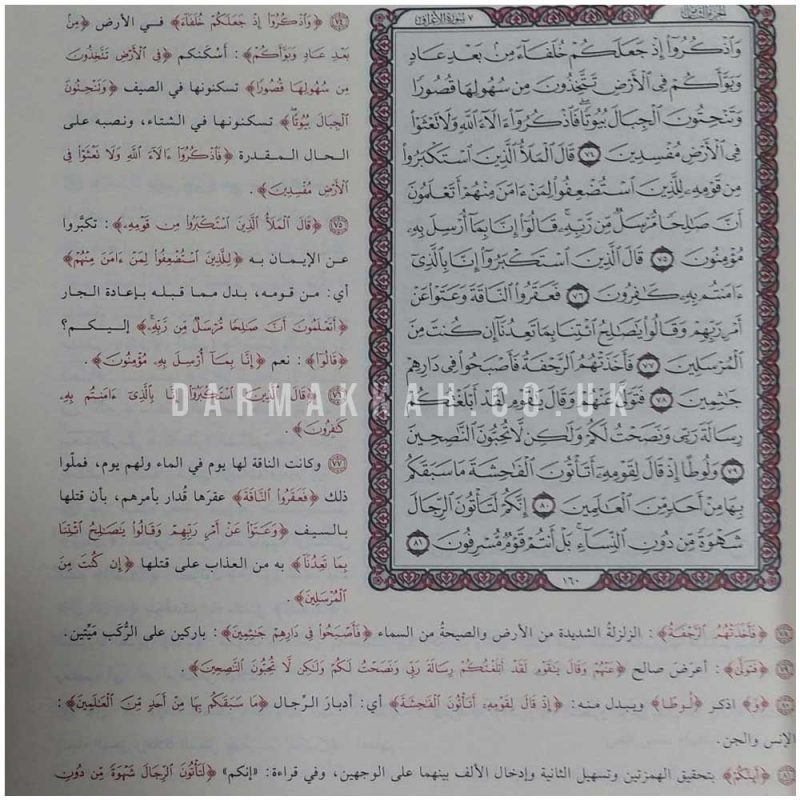 ٧ سورة الأعراف
وَاذْكُرُوا إِذْ جَعَلَكُمْ خُلَفَاءَ مِنْ بَعْدِ عَادٍ
وَبَوَّأَكُمْ فِي الْأَرْضِ تَتَّخِذُونَ مِنْ سُهُولِهَا قُصُورًا
وَتَنْحِتُونَ الْجِبَالَ بُيُوتًا فَاذْكُرُوا ءَالَاءَ اللَّهِ وَلَا تَعْثَوْا
فِي الْأَرْضِ مُفْسِدِينَ ٧٤ قَالَ الْمَلَأُ الَّذِينَ اسْتَكْبَرُوا
مِنْ قَوْمِهِ لِلَّذِينَ اسْتُضْعِفُوا لِمَنْ ءَامَنَ مِنْهُمْ أَتَعْلَمُونَ
أَنَّ صَالِحًا مُرْسَلٌ مِنْ رَبِّهِ قَالُوا إِنَّا بِمَا أُرْسِلَ بِهِ
مُؤْمِنُونَ ٧٥ قَالَ الَّذِينَ اسْتَكْبَرُوا إِنَّا بِالَّذِي
ءَامَنْتُمْ بِهِ كَافِرُونَ ٧٦ فَعَقَرُوا النَّاقَةَ وَعَتَوْا عَنْ
أَمْرِ رَبِّهِمْ وَقَالُوا يَاصَالِحُ ائْتِنَا بِمَا تَعِدُنَا إِنْ كُنْتَ مِنَ
الْمُرْسَلِينَ ٧٧ فَأَخَذَتْهُمُ الرَّجْفَةُ فَأَصْبَحُوا فِي دَارِهِمْ
جَاثِمِينَ ٧٨ فَتَوَلَّى عَنْهُمْ وَقَالَ يَاقَوْمِ لَقَدْ أَبْلَغْتُكُمْ
رِسَالَةَ رَبِّي وَنَصَحْتُ لَكُمْ وَلَكِنْ لَا تُحِبُّونَ النَّاصِحِينَ
٧٩ وَلُوطًا إِذْ قَالَ لِقَوْمِهِ أَتَأْتُونَ الْفَاحِشَةَ مَا سَبَقَكُمْ
بِهَا مِنْ أَحَدٍ مِنَ الْعَالَمِينَ ٨٠ إِنَّكُمْ لَتَأْتُونَ الرِّجَالَ
شَهْوَةً مِنْ دُونِ النِّسَاءِ بَلْ أَنْتُمْ قَوْمٌ مُسْرِفُونَ ٨١
١٦٠
٧٤ ﴿وَاذْكُرُوا إِذْ جَعَلَكُمْ خُلَفَاءَ﴾ في الأرض ﴿مِنْ
بَعْدِ عَادٍ وَبَوَّأَكُمْ﴾: أسكنكم ﴿فِي الْأَرْضِ تَتَّخِذُونَ
مِنْ سُهُولِهَا قُصُورًا﴾ تسكنونها في الصيف ﴿وَتَنْحِتُونَ
الْجِبَالَ بُيُوتًا﴾ تسكنونها في الشتاء، ونصبه على
الحال المقدرة ﴿فَاذْكُرُوا ءَالَاءَ اللَّهِ وَلَا تَعْثَوْا فِي
الْأَرْضِ مُفْسِدِينَ﴾.
٧٥ ﴿قَالَ الْمَلَأُ الَّذِينَ اسْتَكْبَرُوا مِنْ قَوْمِهِ﴾: تكبَّروا
عن الإيمان به ﴿لِلَّذِينَ اسْتُضْعِفُوا لِمَنْ ءَامَنَ مِنْهُمْ﴾
أي: من قومه، بدل مما قبله بإعادة الجار
﴿أَتَعْلَمُونَ أَنَّ صَالِحًا مُرْسَلٌ مِنْ رَبِّهِ﴾ إليكم؟
﴿قَالُوا﴾: نعم ﴿إِنَّا بِمَا أُرْسِلَ بِهِ مُؤْمِنُونَ﴾.
٧٦ ﴿قَالَ الَّذِينَ اسْتَكْبَرُوا إِنَّا بِالَّذِي ءَامَنْتُمْ بِهِ
كَافِرُونَ﴾.
٧٧ وكانت الناقة لها يوم في الماء ولهم يوم، فملّوا
ذلك ﴿فَعَقَرُوا النَّاقَةَ﴾ عقرها قُدار بأمرهم، بأن قتلها
بالسيف ﴿وَعَتَوْا عَنْ أَمْرِ رَبِّهِمْ وَقَالُوا يَاصَالِحُ ائْتِنَا
بِمَا تَعِدُنَا﴾ به من العذاب على قتلها ﴿إِنْ كُنْتَ مِنَ
الْمُرْسَلِينَ﴾.
٧٨ ﴿فَأَخَذَتْهُمُ الرَّجْفَةُ﴾: الزلزلةُ الشديدة من الأرض والصيحة من السماء ﴿فَأَصْبَحُوا فِي دَارِهِمْ جَاثِمِينَ﴾: باركين على الرُّكَب ميّتين.
٧٩ ﴿فَتَوَلَّى﴾: أعرَضَ صالح ﴿عَنْهُمْ وَقَالَ يَاقَوْمِ لَقَدْ أَبْلَغْتُكُمْ رِسَالَةَ رَبِّي وَنَصَحْتُ لَكُمْ وَلَكِنْ لَا تُحِبُّونَ النَّاصِحِينَ﴾.
٨٠ ﴿وَ﴾ اذكر ﴿لُوطًا﴾ ويبدل منه: ﴿إِذْ قَالَ لِقَوْمِهِ أَتَأْتُونَ الْفَاحِشَةَ﴾ أي: أدبارَ الرِّجال ﴿مَا سَبَقَكُمْ بِهَا مِنْ أَحَدٍ مِنَ الْعَالَمِينَ﴾:
الإنس والجن.
٨١ ﴿أَئِنَّكُمْ﴾ بتحقيق الهمزتين وتسهيل الثانية وإدخال الألف بينهما على الوجهين، وفي قراءة: «إنكم» ﴿لَتَأْتُونَ الرِّجَالَ شَهْوَةً مِنْ دُونِ
DARMAKKAH.CO.UK